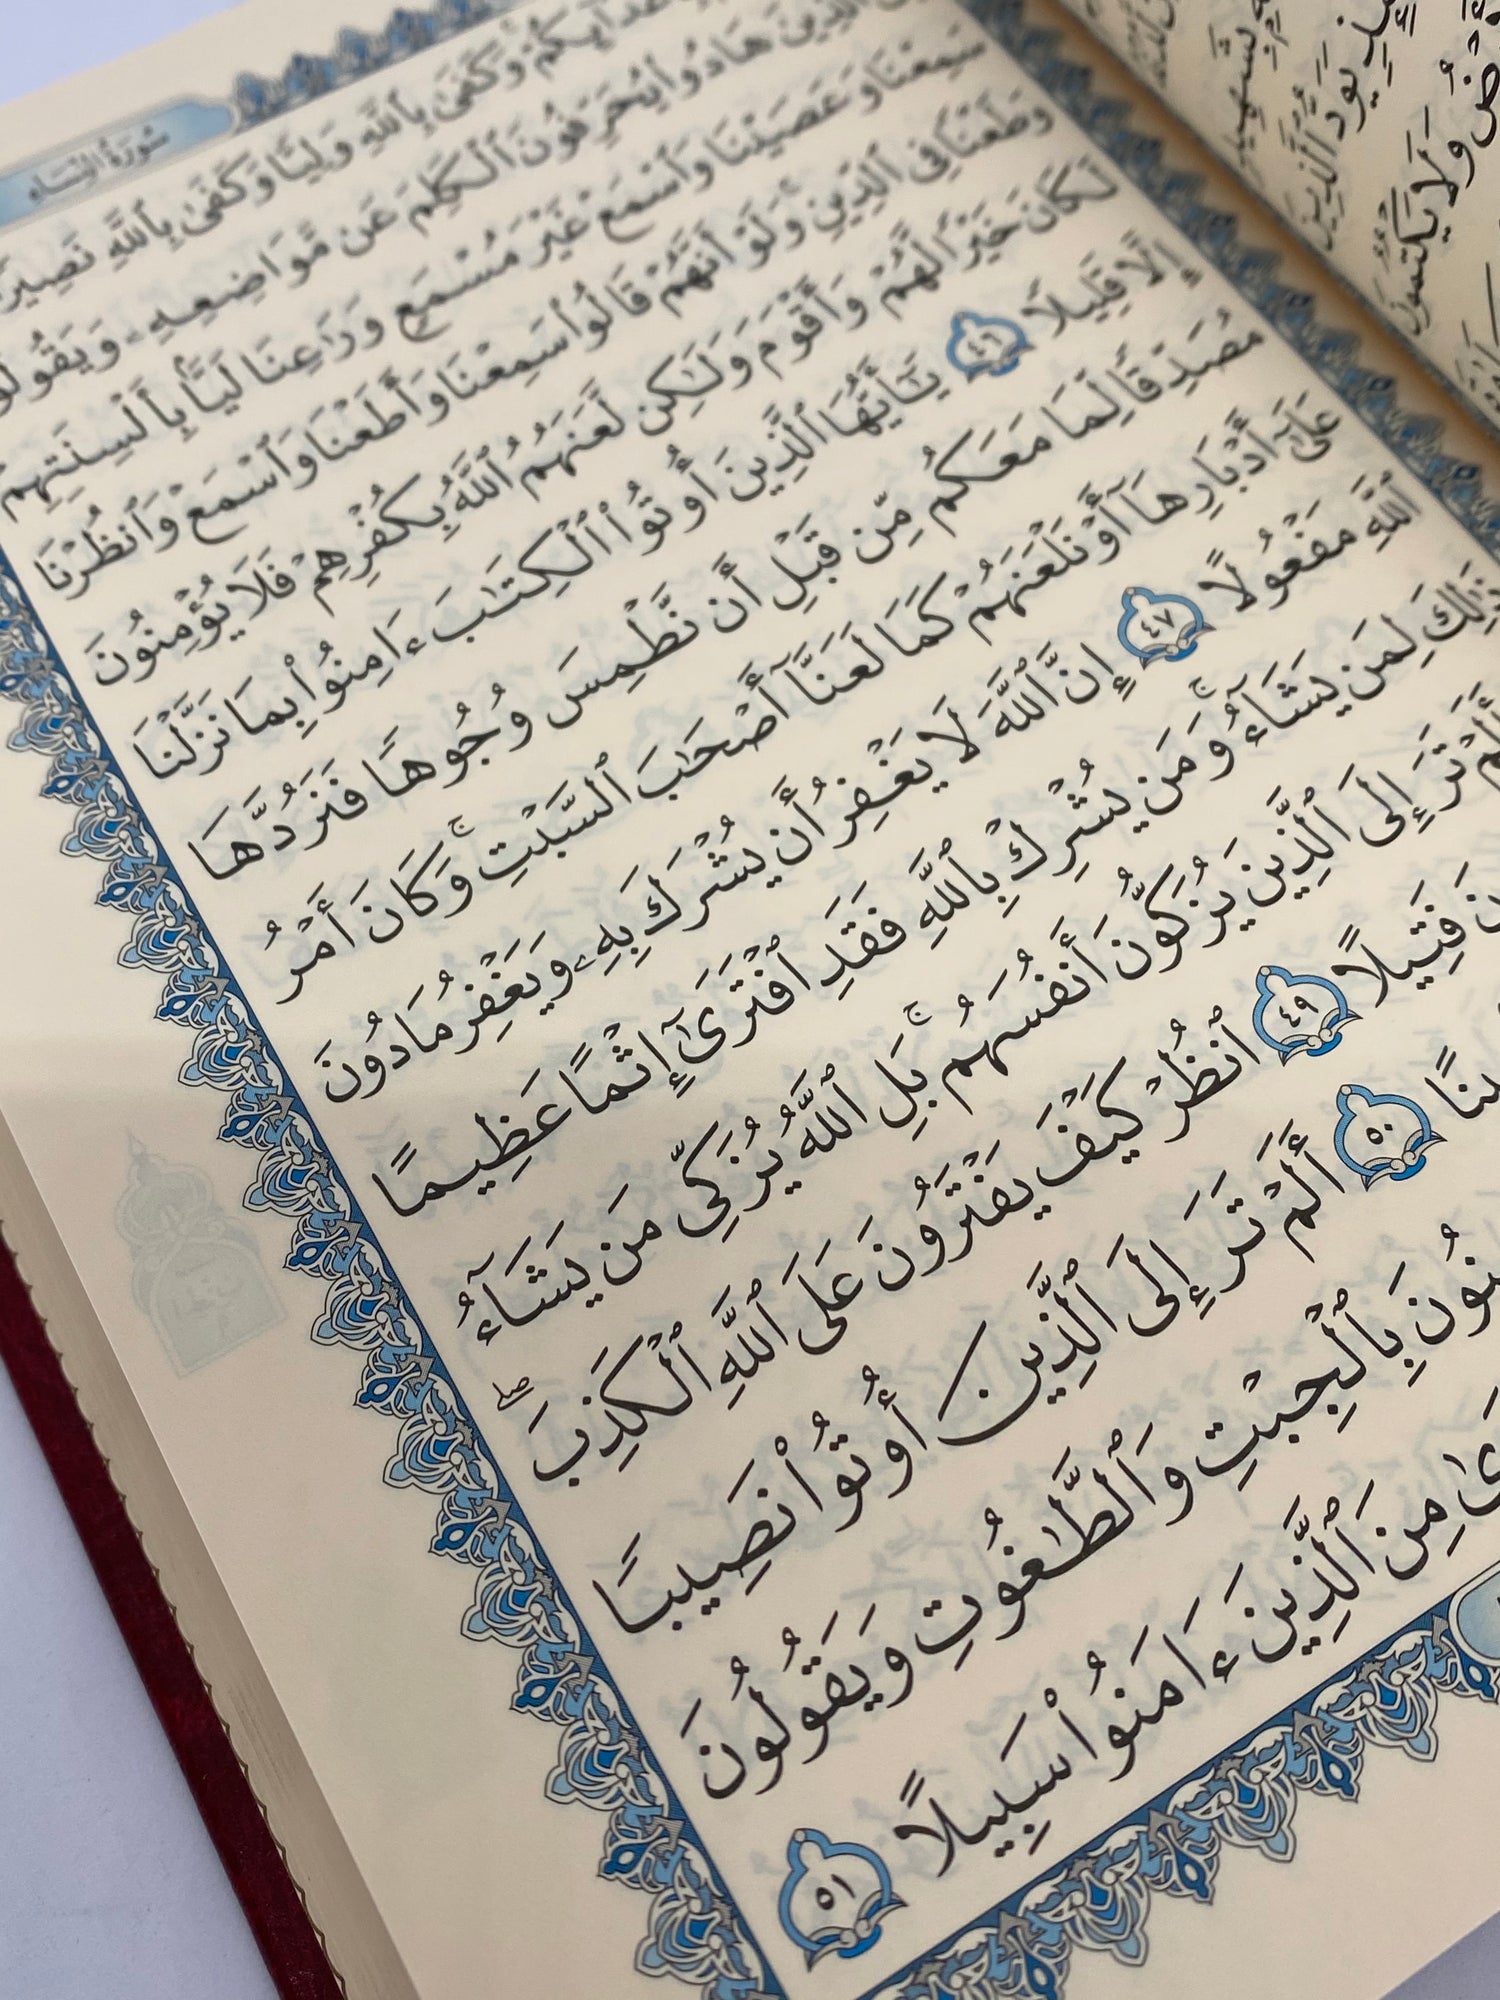 سُورَةُ النِّسَاء
وَكَفَىٰ بِٱللَّهِ وَلِيًّا وَكَفَىٰ بِٱللَّهِ نَصِيرًا
ٱلَّذِينَ هَادُوا۟ يُحَرِّفُونَ ٱلْكَلِمَ عَن مَّوَاضِعِهِۦ وَيَقُولُونَ
سَمِعْنَا وَعَصَيْنَا وَٱسْمَعْ غَيْرَ مُسْمَعٍ وَرَٰعِنَا لَيًّۢا بِأَلْسِنَتِهِمْ
وَطَعْنًا فِى ٱلدِّينِ ۚ وَلَوْ أَنَّهُمْ قَالُوا۟ سَمِعْنَا وَأَطَعْنَا وَٱسْمَعْ وَٱنظُرْنَا
لَكَانَ خَيْرًا لَّهُمْ وَأَقْوَمَ وَلَـٰكِن لَّعَنَهُمُ ٱللَّهُ بِكُفْرِهِمْ فَلَا يُؤْمِنُونَ
إِلَّا قَلِيلًا ٤٦ يَـٰٓأَيُّهَا ٱلَّذِينَ أُوتُوا۟ ٱلْكِتَـٰبَ ءَامِنُوا۟ بِمَا نَزَّلْنَا
مُصَدِّقًا لِّمَا مَعَكُم مِّن قَبْلِ أَن نَّطْمِسَ وُجُوهًا فَنَرُدَّهَا
عَلَىٰٓ أَدْبَارِهَآ أَوْ نَلْعَنَهُمْ كَمَا لَعَنَّآ أَصْحَـٰبَ ٱلسَّبْتِ ۚ وَكَانَ أَمْرُ
ٱللَّهِ مَفْعُولًا ٤٧ إِنَّ ٱللَّهَ لَا يَغْفِرُ أَن يُشْرَكَ بِهِۦ وَيَغْفِرُ مَا دُونَ
ذَٰلِكَ لِمَن يَشَآءُ ۚ وَمَن يُشْرِكْ بِٱللَّهِ فَقَدِ ٱفْتَرَىٰٓ إِثْمًا عَظِيمًا
أَلَمْ تَرَ إِلَى ٱلَّذِينَ يُزَكُّونَ أَنفُسَهُم ۚ بَلِ ٱللَّهُ يُزَكِّى مَن يَشَآءُ
فَتِيلًا ٤٩ ٱنظُرْ كَيْفَ يَفْتَرُونَ عَلَى ٱللَّهِ ٱلْكَذِبَ ۖ
٥٠ أَلَمْ تَرَ إِلَى ٱلَّذِينَ أُوتُوا۟ نَصِيبًا
بِٱلْجِبْتِ وَٱلطَّـٰغُوتِ وَيَقُولُونَ
مِنَ ٱلَّذِينَ ءَامَنُوا۟ سَبِيلًا ٥١